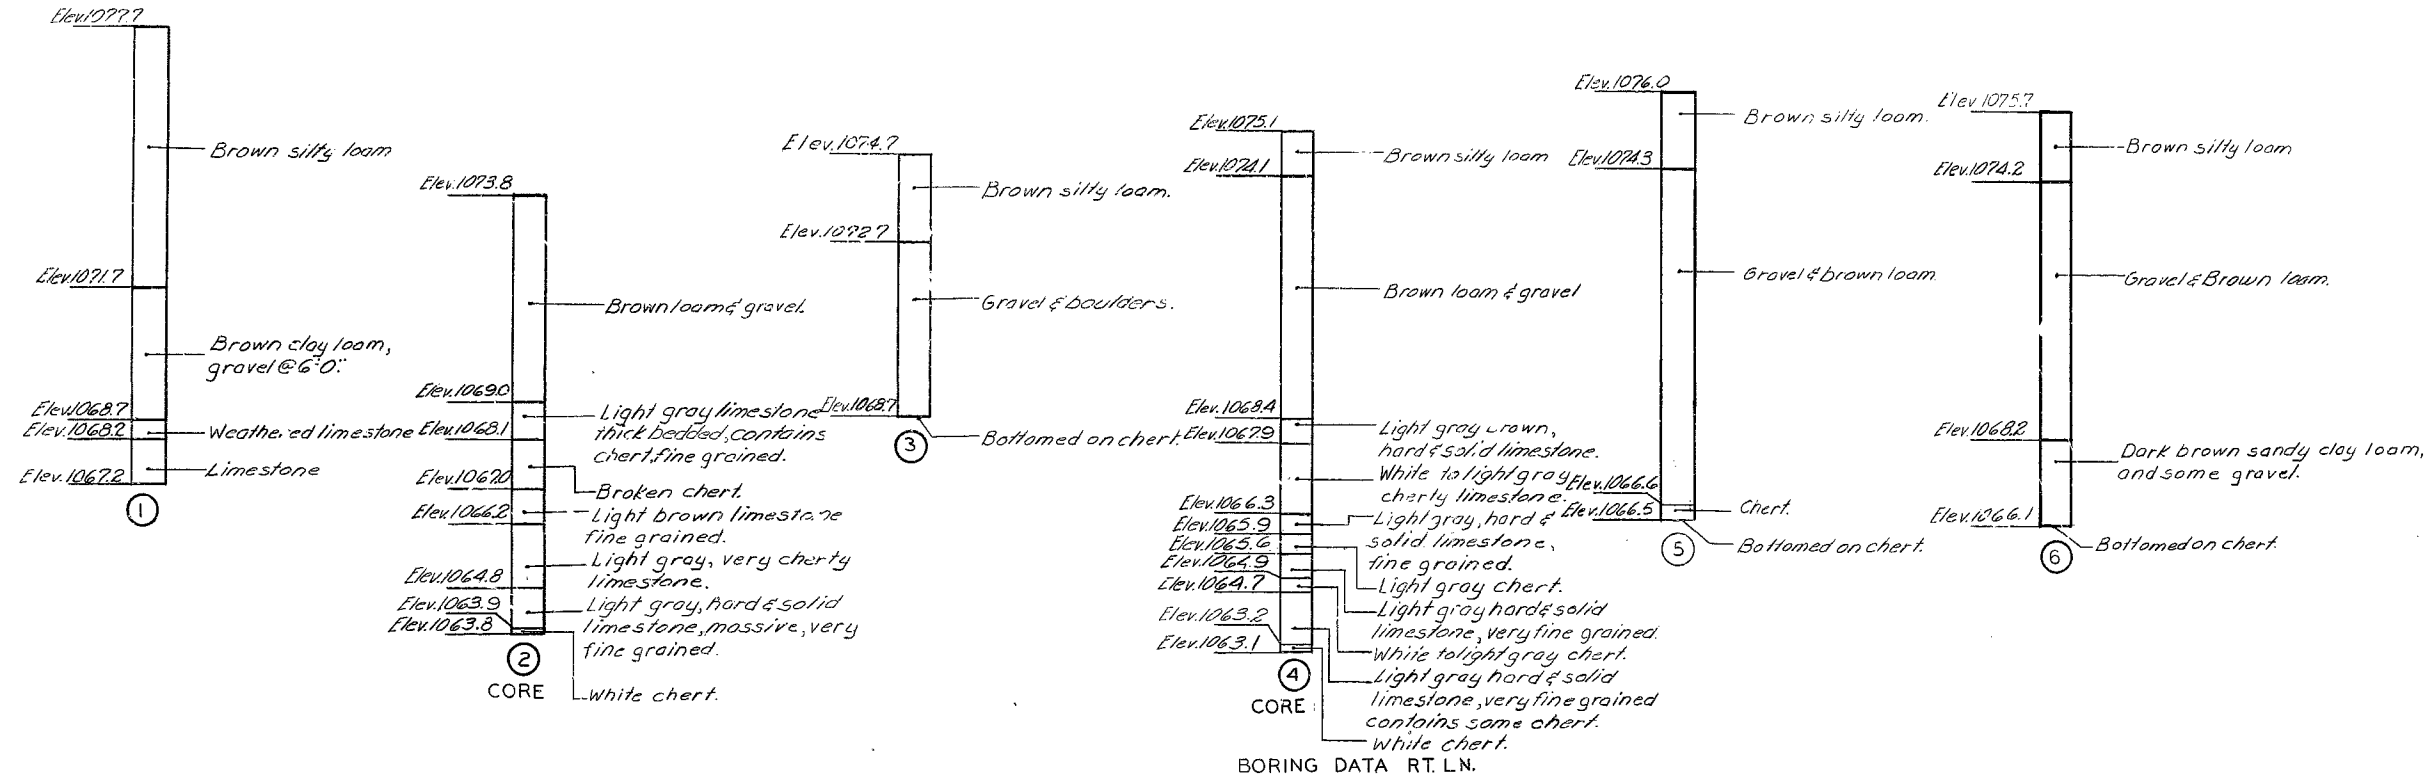 Elev.1077.7
Brown silty loam
Elev.1071.7
Brown clay loam,
gravel @ 6'-0".
Elev.1068.7
Elev.1068.2
Weathered limestone
Limestone
Elev.1067.2
1
Elev.1073.8
Brown loam & gravel.
Elev.1069.0
Light gray limestone
thick bedded, contains
chert, fine grained.
Elev.1068.1
Elev.1067.0
Broken chert.
Elev.1066.2
Light brown limestone
fine grained.
Light gray, very cherty
limestone.
Elev.1064.8
Elev.1063.9
Light gray, hard & solid
limestone, massive, very
fine grained.
Elev.1063.8
2
CORE
White chert.
Elev.1074.7
Brown silty loam.
Elev.1072.7
Gravel & boulders.
Elev.1068.7
3
Bottomed on chert.
Elev.1075.1
Brown silty loam
Elev.1074.1
Brown loam & gravel
Elev.1068.4
Light gray brown,
hard & solid limestone.
Elev.1067.9
White to light gray
cherty limestone.
Elev.1066.3
Light gray, hard &
solid limestone,
fine grained.
Elev.1065.9
Elev.1065.6
Light gray chert.
Elev.1064.9
Light gray hard & solid
limestone, very fine grained.
Elev.1064.7
White to light gray chert.
Elev.1063.2
Light gray hard & solid
limestone, very fine grained
contains some chert.
Elev.1063.1
White chert.
4
CORE
Elev.1076.0
Brown silty loam.
Elev.1074.3
Gravel & brown loam.
Elev.1066.6
Chert.
Elev.1066.5
5
Bottomed on chert.
Elev.1075.7
Brown silty loam
Elev.1074.2
Gravel & Brown loam.
Elev.1068.2
Dark brown sandy clay loam,
and some gravel.
Elev.1066.1
6
Bottomed on chert.
BORING DATA RT. LN.